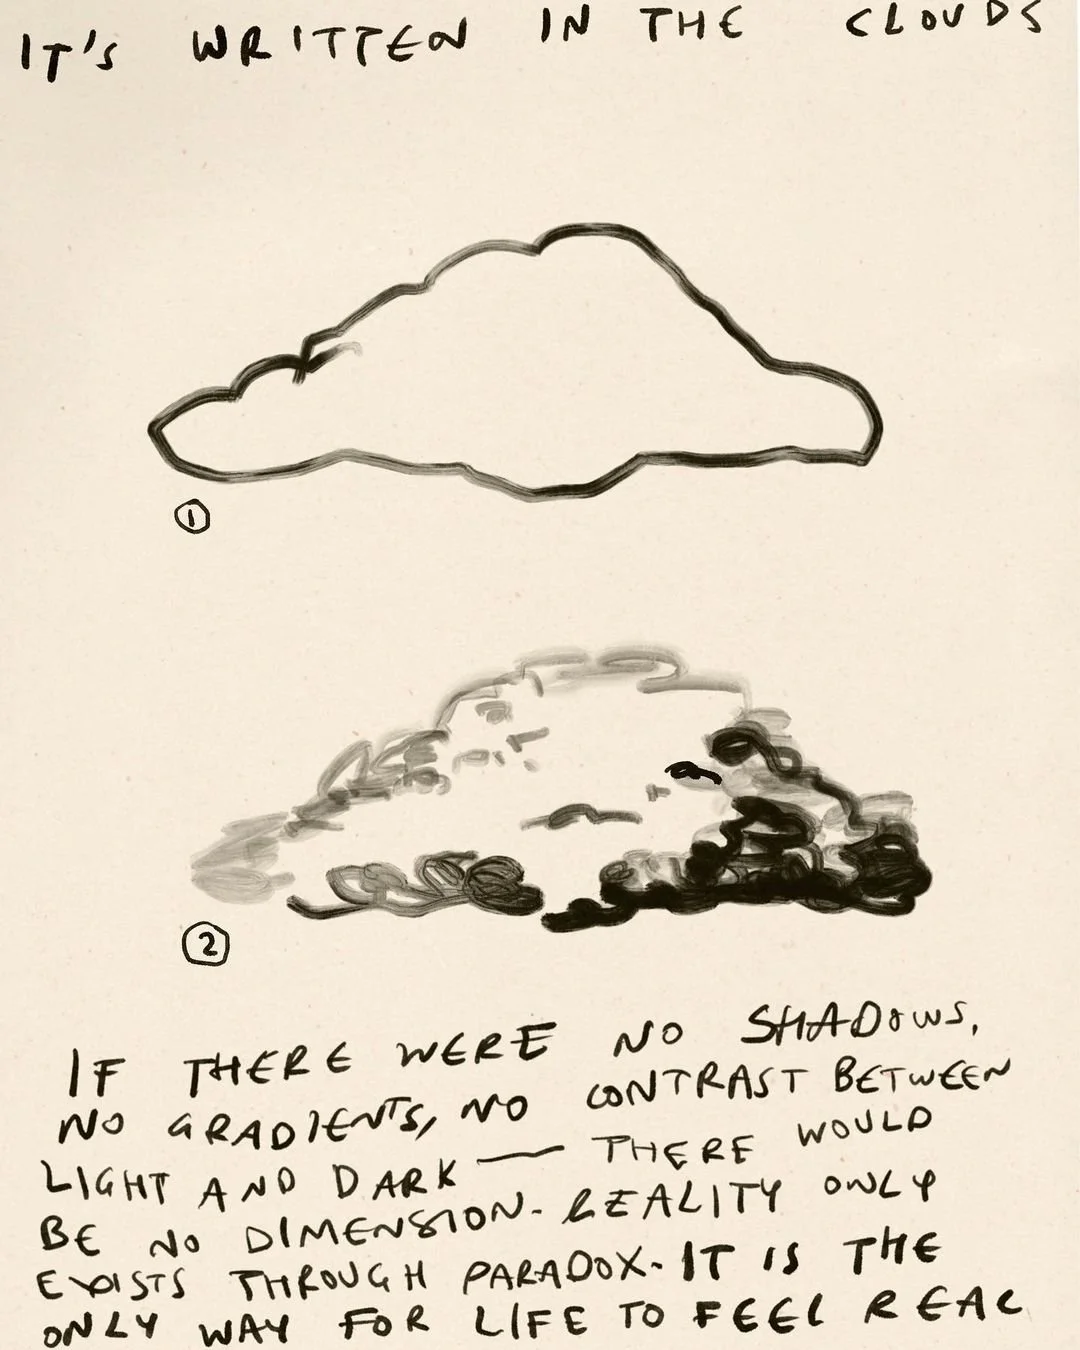 IT'S WRITTEN IN THE CLOUDS
1
2
IF THERE WERE NO SHADOWS,
NO GRADIENTS, NO CONTRAST BETWEEN
LIGHT AND DARK — THERE WOULD
BE NO DIMENSION. REALITY ONLY
EXISTS THROUGH PARADOX. IT IS THE
ONLY WAY FOR LIFE TO FEEL REAL